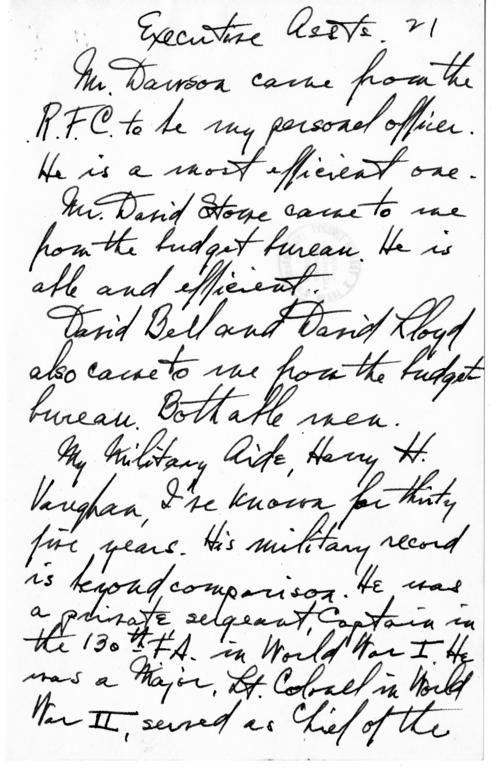 Executive Assts. 21
Mr. Dawson came from the
R.F.C. to be my personel officer.
He is a most efficient one.
Mr. David Stowe came to me
from the budget bureau. He is
able and efficient.
David Bell and David Lloyd
also came to me from the budget
bureau. Both able men.
My Military Aide, Harry H.
Vaughan, I've known for thirty
five years. His military record
is beyond comparison. He was
a private, sergeant, Captain in
the 130th F.A. in World War I. He
was a Major, Lt. Colonel in World
War II, served as Chief of the